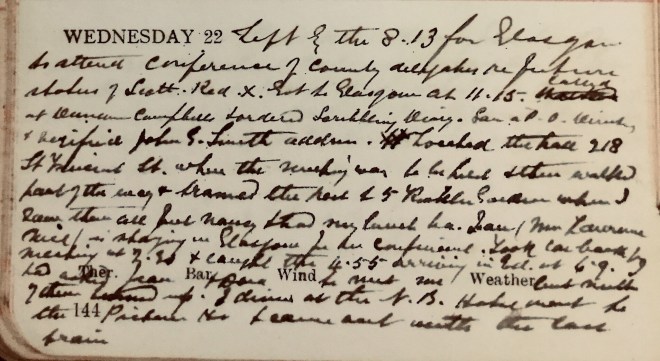 WEDNESDAY 22 Left by the 8.13 for Glasgow
to attend conference of County delegates re future
status of Scott. Red X. Got to Glasgow at 11.15. called
at Duncan Campbells & ordered Scribbling Diary. Saw a P.O. Directory
& verified John G. Smith address. located the hall 218
St Vincent St. where the meeting was to be held & then walked
part of the way & trammed the rest to 5 Gardens where I
saw them all but Nancy & had my lunch
is staying in Glasgow for her confinement. Took car back
meeting at 2.30 & caught the 4.55 arriving in Ed. at 6.9.
Ther. Bar. Wind Weather
had asked Jean & Dora to meet me but neither
of them turned up. I dined at the N.B. Hotel went to
144
the Pictures & came out with the last
train